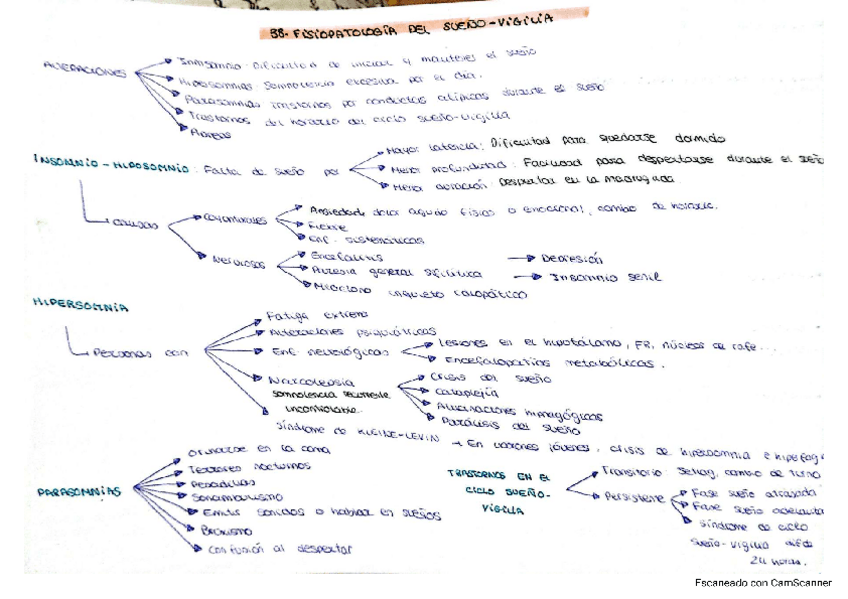 38. FISIOPATOLOGÍA DEL SUEÑO-VIGILIA
ALTERACIONES
Insomnio: Dificultad de iniciar y mantener el sueño
Hipersomnias: Somnolencia excesiva por el día.
Parasomnias: Trastornos por conductas atípicas durante el sueño
Trastornos del horario del ciclo sueño-vigilia
INSOMNIO - HIPOSOMNIO: Falta de sueño por
Mayor latencia: Dificultad para quedarse dormido
Menor profundidad: Facilidad para despertarse durante el sueño
Menor duración: Despertar en la madrugada
Causas
Coyunturales
Ansiedad, dolor agudo físico o emocional, cambio de horario.
Fiebre
Enf. sistemáticas
Nerviosas
Encefalitis
Depresión
Paresia general sifilítica
Insomnio senil
Mioclono inquieto idiopático
HIPERSOMNIA
Personas con
Fatiga extrema
Alteraciones psiquiátricas
Enf. neurológicas
Lesiones en el hipotálamo, FR, núcleos de rafe...
Encefalopatías metabólicas.
Narcolepsia
somnolencia recurrente
incontrolable.
Crisis del sueño
Cataplejía
Alucinaciones hipnagógicas
Parálisis del sueño
Síndrome de KLEINE-LEVIN → En varones jóvenes, crisis de hipersomnia e hiperfag
PARASOMNIAS
Orinarse en la cama
Terrores nocturnos
Pesadillas
Sonambulismo
Emitir sonidos o hablar en sueños
Bruxismo
Confusión al despertar
TRASTORNOS EN EL
CICLO SUEÑO-
VIGILIA
Transitorio: Jetlag, cambio de turno
Persistente
Fase sueño atrasada
Fase sueño adelanta
Síndrome de ciclo
sueño-vigilia
24 horas.
Escaneado con CamScanner